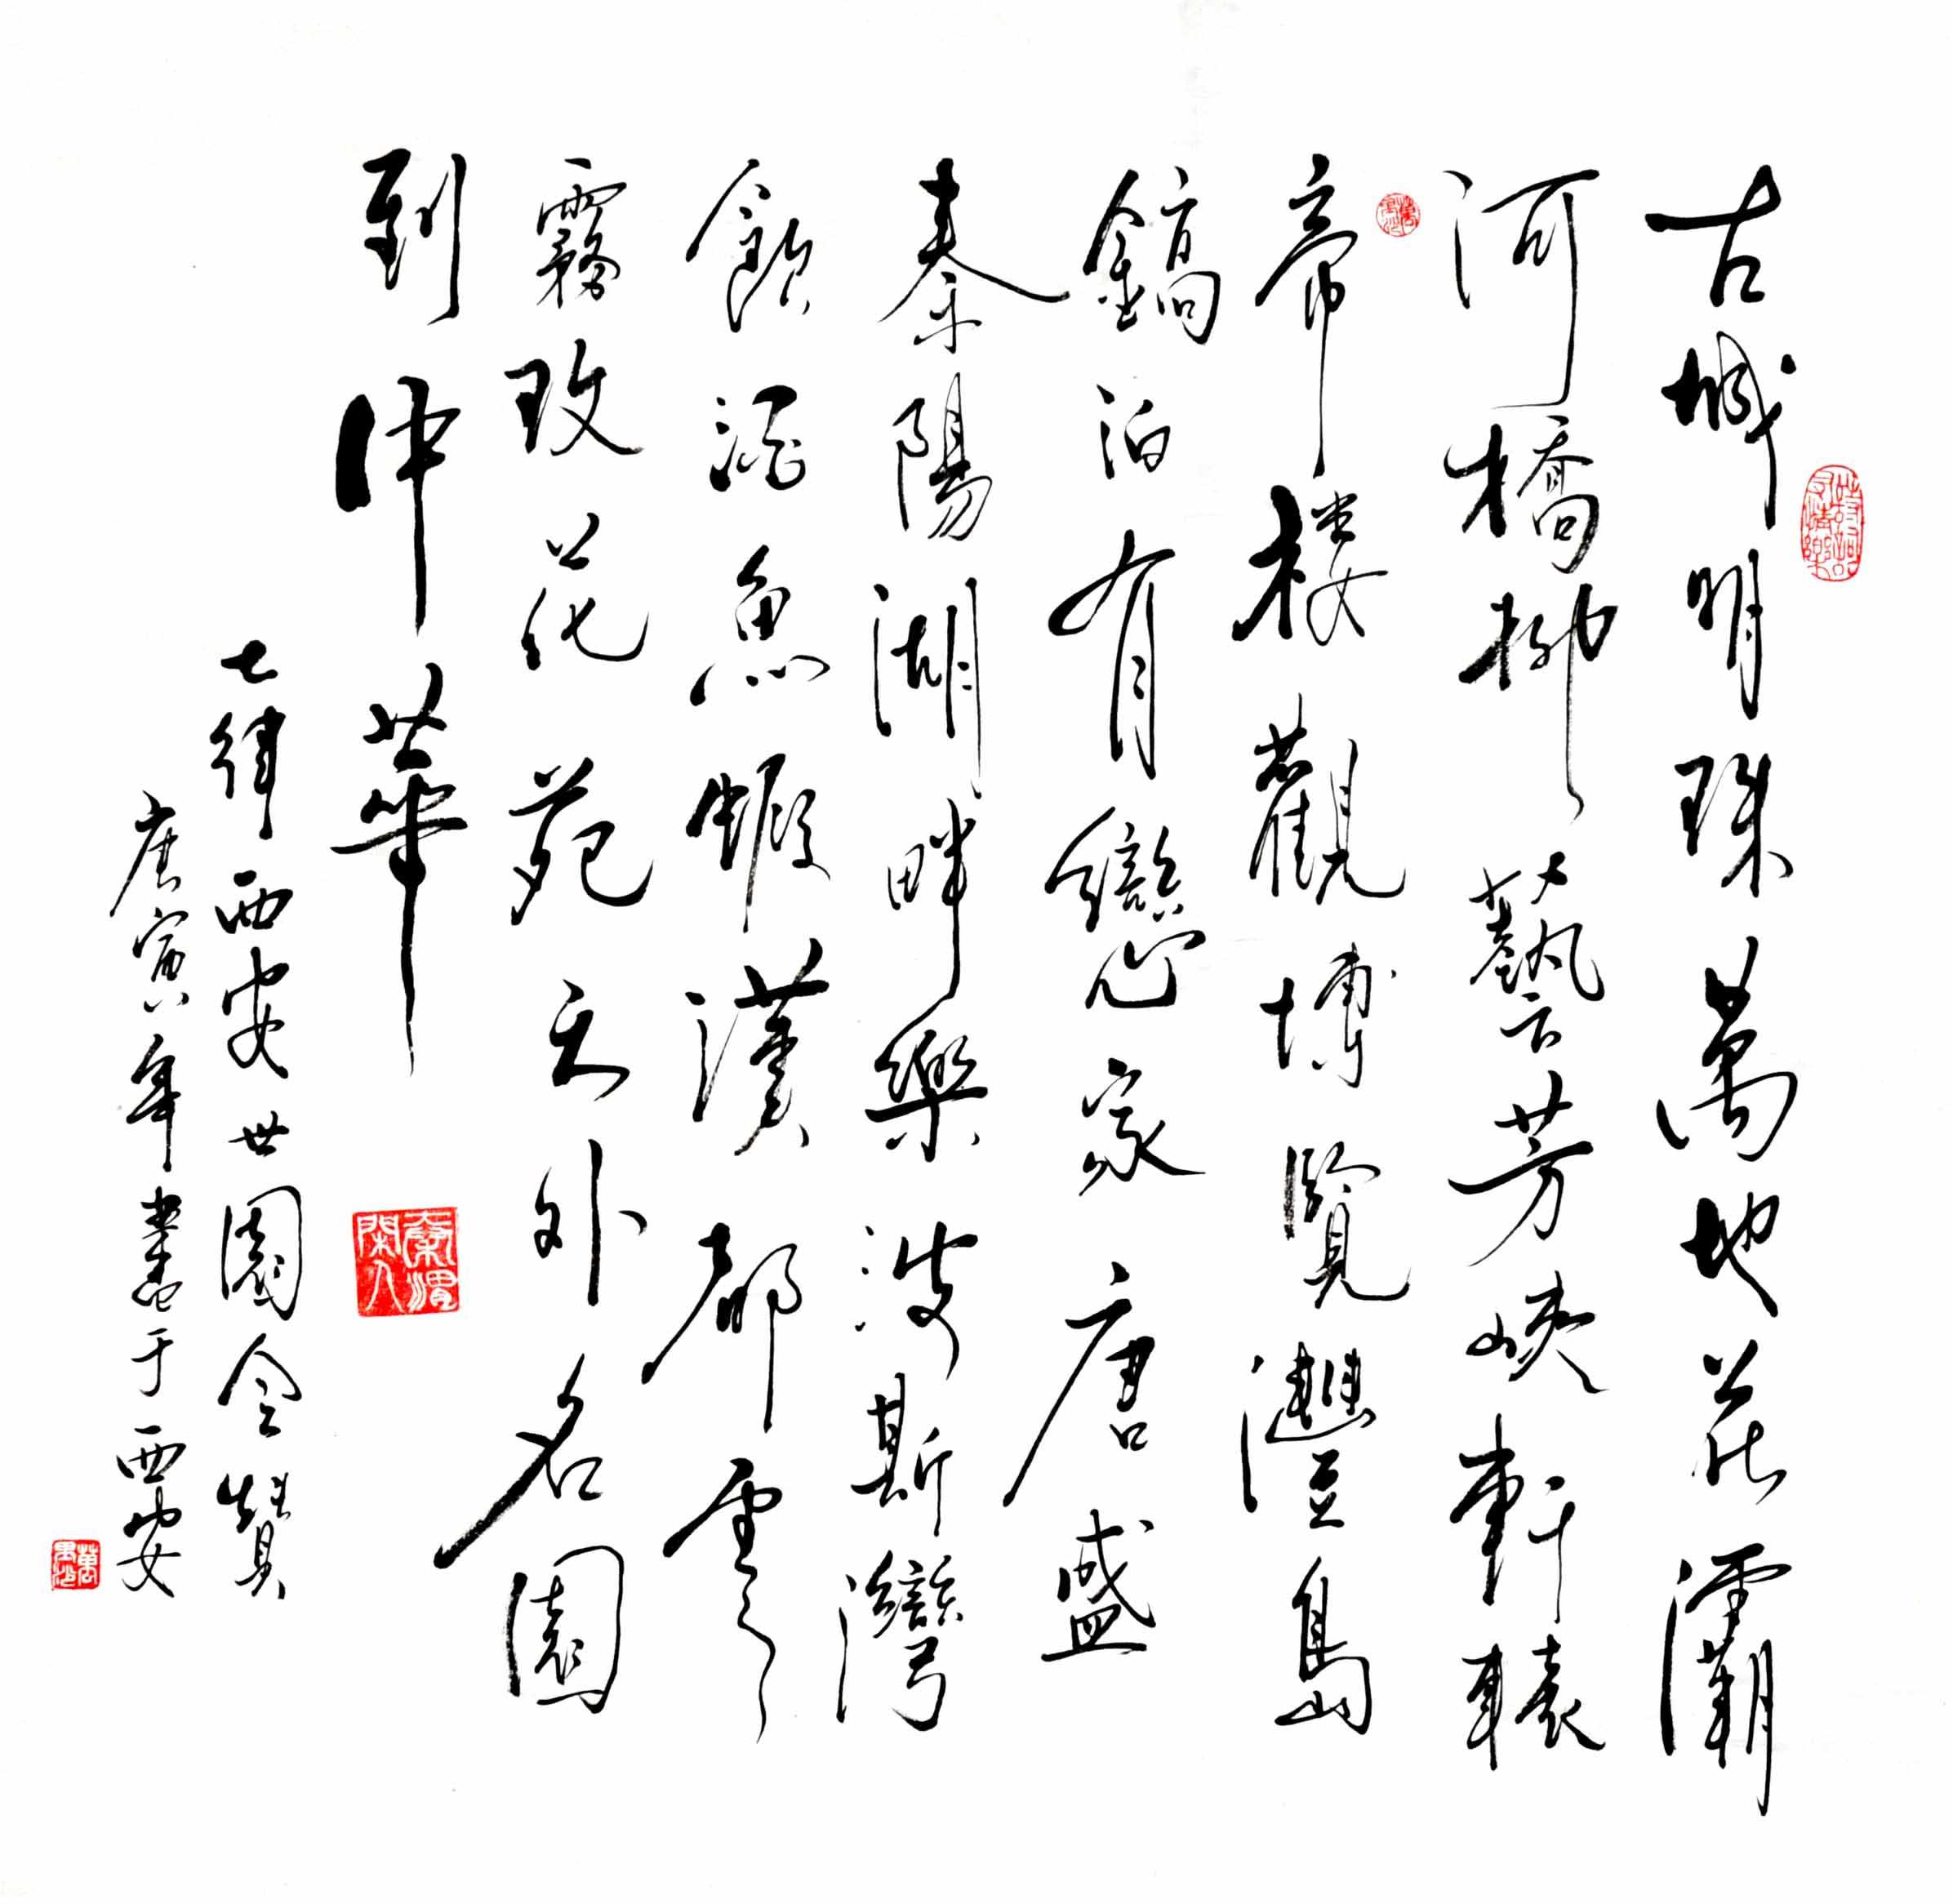 古城明珠萬地花灞
河橋柳藝芳峽軒轅
帝楼觀博覽灃島
鎬泊有戀家唐盛
秦陽湖畔樂波斯灣
飲酒魚蝦漢都雲
霧玫花苑天外名園
到中華
七律西安世園会贊
庚寅年書于西安
秦渭閑人